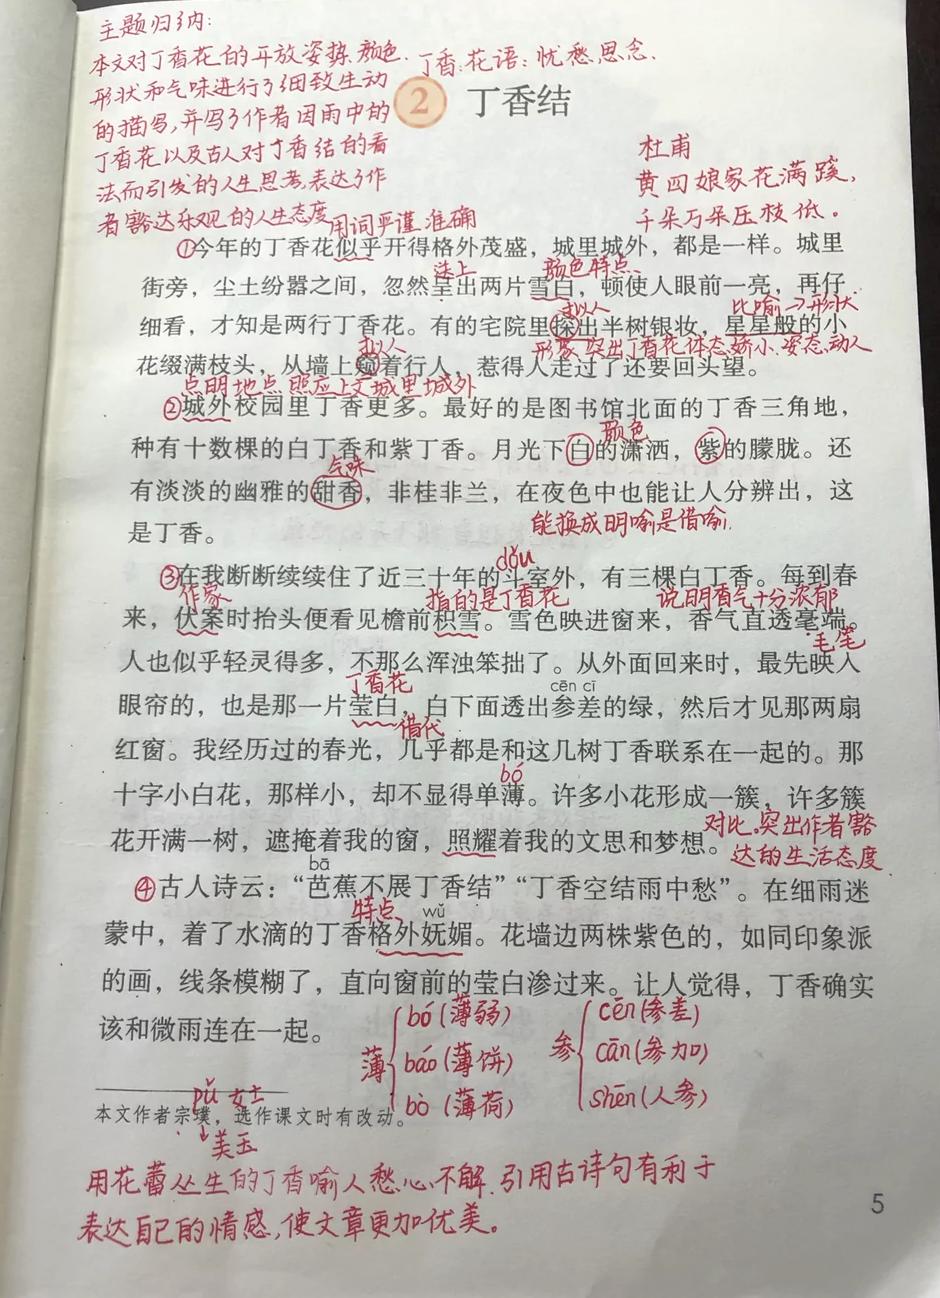 主题归纳:
本文对丁香花的开放姿势、颜色、
丁香:花语:忧愁、思念、
形状和气味进行了细致生动
的描写,并写了作者因雨中的
丁香花以及古人对丁香结的看
法而引发的人生思考,表达了作
者豁达乐观的人生态度
2 丁香结
杜甫
黄四娘家花满蹊,
千朵万朵压枝低。
用词严谨、准确
①今年的丁香花似乎开得格外茂盛,城里城外,都是一样。城里
送上 颜色特点、
街旁,尘土纷嚣之间,忽然呈出两片雪白,顿使人眼前一亮,再仔
拟人 比喻→形状
细看,才知是两行丁香花。有的宅院里探出半树银妆,星星般的小
拟人 形象、突出丁香花体态娇小、姿态动人
花缀满枝头,从墙上窥着行人,惹得人走过了还要回头望。
点明地点、照应上文城里城外
②城外校园里丁香更多。最好的是图书馆北面的丁香三角地,
颜色
种有十数棵的白丁香和紫丁香。月光下白的潇洒,紫的朦胧。还
气味
有淡淡的幽雅的甜香,非桂非兰,在夜色中也能让人分辨出,这
是丁香。
能换成明喻是借喻.
dǒu
③在我断断续续住了近三十年的斗室外,有三棵白丁香。每到春
作家 指的是丁香花 说明香气十分浓郁
来,伏案时抬头便看见檐前积雪。雪色映进窗来,香气直透毫端。
毛笔
人也似乎轻灵得多,不那么浑浊笨拙了。从外面回来时,最先映入
丁香花 cēn cī
眼帘的,也是那一片莹白,白下面透出参差的绿,然后才见那两扇
借代
红窗。我经历过的春光,几乎都是和这几树丁香联系在一起的。那
bó
十字小白花,那样小,却不显得单薄。许多小花形成一簇,许多簇
花开满一树,遮掩着我的窗,照耀着我的文思和梦想。
对比。突出作者豁
达的生活态度
bā
④古人诗云:“芭蕉不展丁香结”“丁香空结雨中愁”。在细雨迷
特点、 wǔ
蒙中,着了水滴的丁香格外妩媚。花墙边两株紫色的,如同印象派
的画,线条模糊了,直向窗前的莹白渗过来。让人觉得,丁香确实
该和微雨连在一起。
薄 bó(薄弱)
báo(薄饼)
bò(薄荷)
参 cēn(参差)
cān(参加)
shēn(人参)
pú 女士
本文作者宗璞,选作课文时有改动。
美玉
用花蕾丛生的丁香喻人愁心不解.引用古诗句有利于
表达自己的情感,使文章更加优美。
5